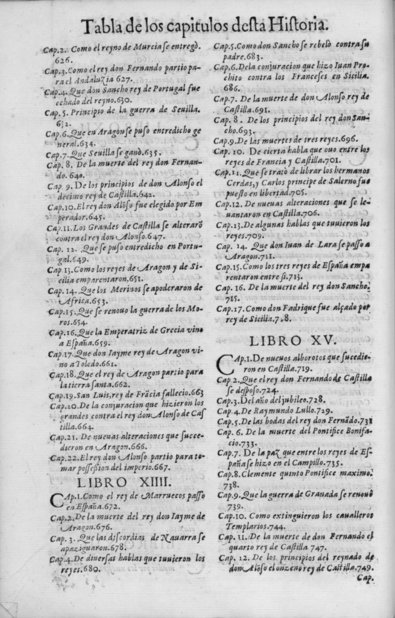 Tabla de los capitulos desta Historia.
Cap.2. Como el reyno de Murcia se entregó.
626.
Cap.3. Como el rey don Fernando partio pa-
ra el Andaluzia 627.
Cap.4. Que don Sancho rey de Portugal fue
echado del reyno.630.
Cap.5. Principio de la guerra de Sevilla.
631.
Cap.6. Que en Aragon se puso entredicho ge
neral.634.
Cap.7. Que Sevilla se ganò.635.
Cap. 8. De la muerte del rey don Fernan-
do. 640.
Cap 9. De los principios de don Alonso el
decimo rey de Castilla.642.
Cap 10. El rey don Alõso fue elegido por Em
perador.645.
Cap.11. Los Grandes de Castilla se alterarõ
contra el rey don Alonso.647.
Cap. 12. Que se puso entredicho en Portu-
gal.649.
Cap.13. Como los reyes de Aragon y de Si-
cilia emparentaron.651.
Cap.14. Que los Merinos se apoderaron de
Africa.653.
Cap.15. Que se renovo la guerra de los Mo-
ros.654.
Cap.16. Que la Emperatriz de Grecia vino
a España.659.
Cap.17. Que don Iayme rey de Aragon vi-
no a Toledo.661.
Cap.18. Que el rey de Aragon partio para
la tierra santa.662.
Cap.19. San Luis, rey de Frãcia fallecio.663
Cap.20. De la conjuracion que hizieron los
grandes contra el rey dom Alonso de Cas
tilla.664.
Cap.21. De nuevas alteraciones que suce-
dieron en Aragon.666.
Cap.22. El rey don Alonso partio para to-
mar possession del imperio.667.
LIBRO XIIII.
CAp.1. Como el rey de Marruecos passò
en España.672.
Cap.2. De la muerte del rey don Iayme de
Aragon.676.
Cap. 3. Que las discordias de Navarra se
apaziguaron.678.
Cap.4. De diversas hablas que tuvieron los
reyes.680.
Cap.5. Como don Sancho se rebelò contra su
padre.683.
Cap.6. De la conjuracion que hizo Iuan Pro
chito contra los Franceses en Sicilia.
686.
Cap.7. De la muerte de don Alonso rey de
Castilla.691.
Cap. 8. De los principios del rey don San-
cho.693.
Cap.9. De las muertes de tres reyes.696.
Cap. 10. De cierta habla que uvo entre los
reyes de Francia y Castilla.701.
Cap.11. Que se tratò de librar los hermanos
Cerdas, y Carlos principe de Salerno fue
puesto en libertad.705.
Cap.12. De nuevas alteraciones que se le-
vantaron en Castilla.706.
Cap.13. De algunas hablas que tuvieron los
reyes.709.
Cap. 14. Que don Iuan de Lara se passo a
Aragon.711.
Cap.15. Como los tres reyes de España empa
rentaron entre si.713.
Cap.16. De la muerte del rey don Sancho.
715.
Cap.17. Como don Fadrique fue alçado por
rey de Sicilia.718.
LIBRO XV.
CAp.1. De nuevos alborotos que sucedie-
ron en Castilla.719.
Cap.2. Que el rey don Fernando de Castilla
se desposo.724.
Cap.3. Del año del jubileo.728.
Cap.4. De Raymundo Lullo.729.
Cap.5. De las bodas del rey don Fernãdo.731
Cap. 6. De la muerte del Pontifice Bonifa-
cio.733.
Cap.7. De la paz que entre los reyes de Es-
paña se hizo en el Campillo.735.
Cap.8. Clemente quinto Pontifice maximo.
738.
Cap.9. Que la guerra de Granada se renovò
739.
Cap.10. Como extinguieron los cavalleros
Templarios.744.
Cap.11. De la muerte de don Fernando el
quarto rey de Castilla 747.
Cap. 12. De los principios del reynado de
dom Alõso el onzeno rey de Castilla.749
Cap.